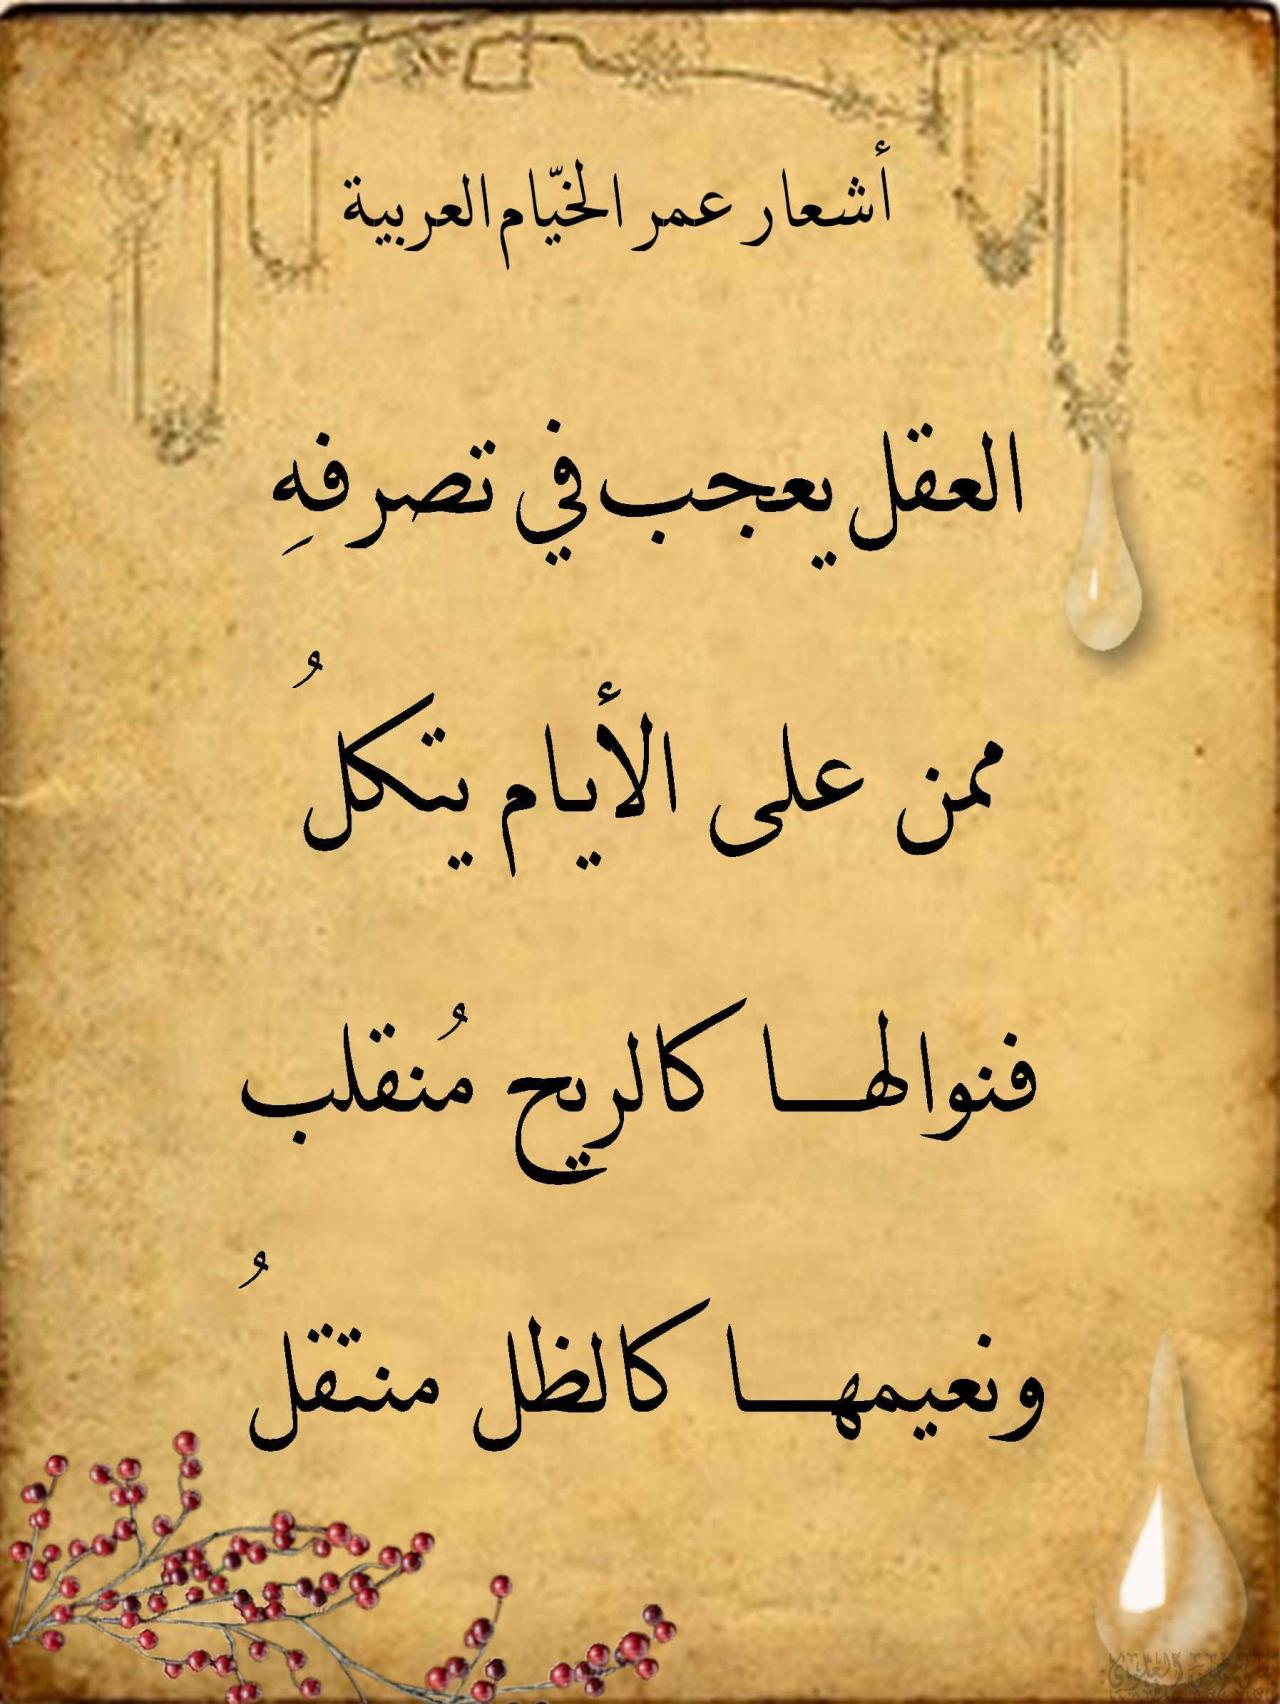 أشعار عمر الخيّام العربية
العقل يعجب في تصرفهِ
ممن على الأيام يتكلُ
فنوالهـا كالريح مُنقلب
ونعيمهـا كالظل منتقلُ